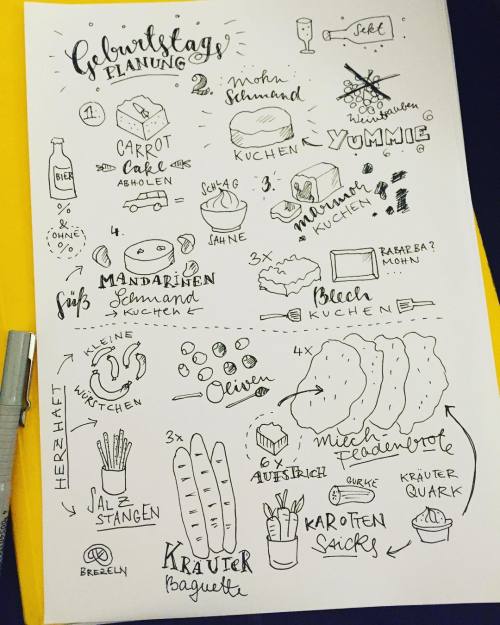 Geburtstags
PLANUNG
Sekt
1.
CARROT
Cake
ABHOLEN
2. mohn
Schmand
KUCHEN
Weintrauben
YUMMIE
BIER
%
&
OHNE
%
=
SCHLAG
SAHNE
3.
marmor
KUCHEN
4.
MANDARINEN
Schmand
→ KUCHEN ←
süß
3x
RABARBA?
MOHN
...
Blech
KUCHEN
HERZHAFT
KLEINE
WÜRSTCHEN
Oliven
4x
miech
Fladenbrote
SALZ
STANGEN
BREZELN
3x
KRÄUTER
Baguette
6x
AUFSTRICH
GURKE
KAROTTEN
SticKs
KRÄUTER
QUARK